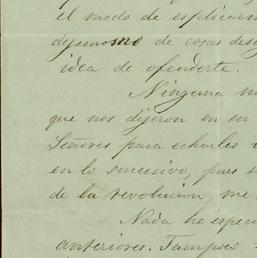 el modo de explicarm
dejemonos de cosas des
idea de ofenderte.
Ninguna
que nos dijeron en su
Señores para echarles
en lo sucesivo, pues
de la revolucion, me
Nada he espe
anteriores. Tampoco